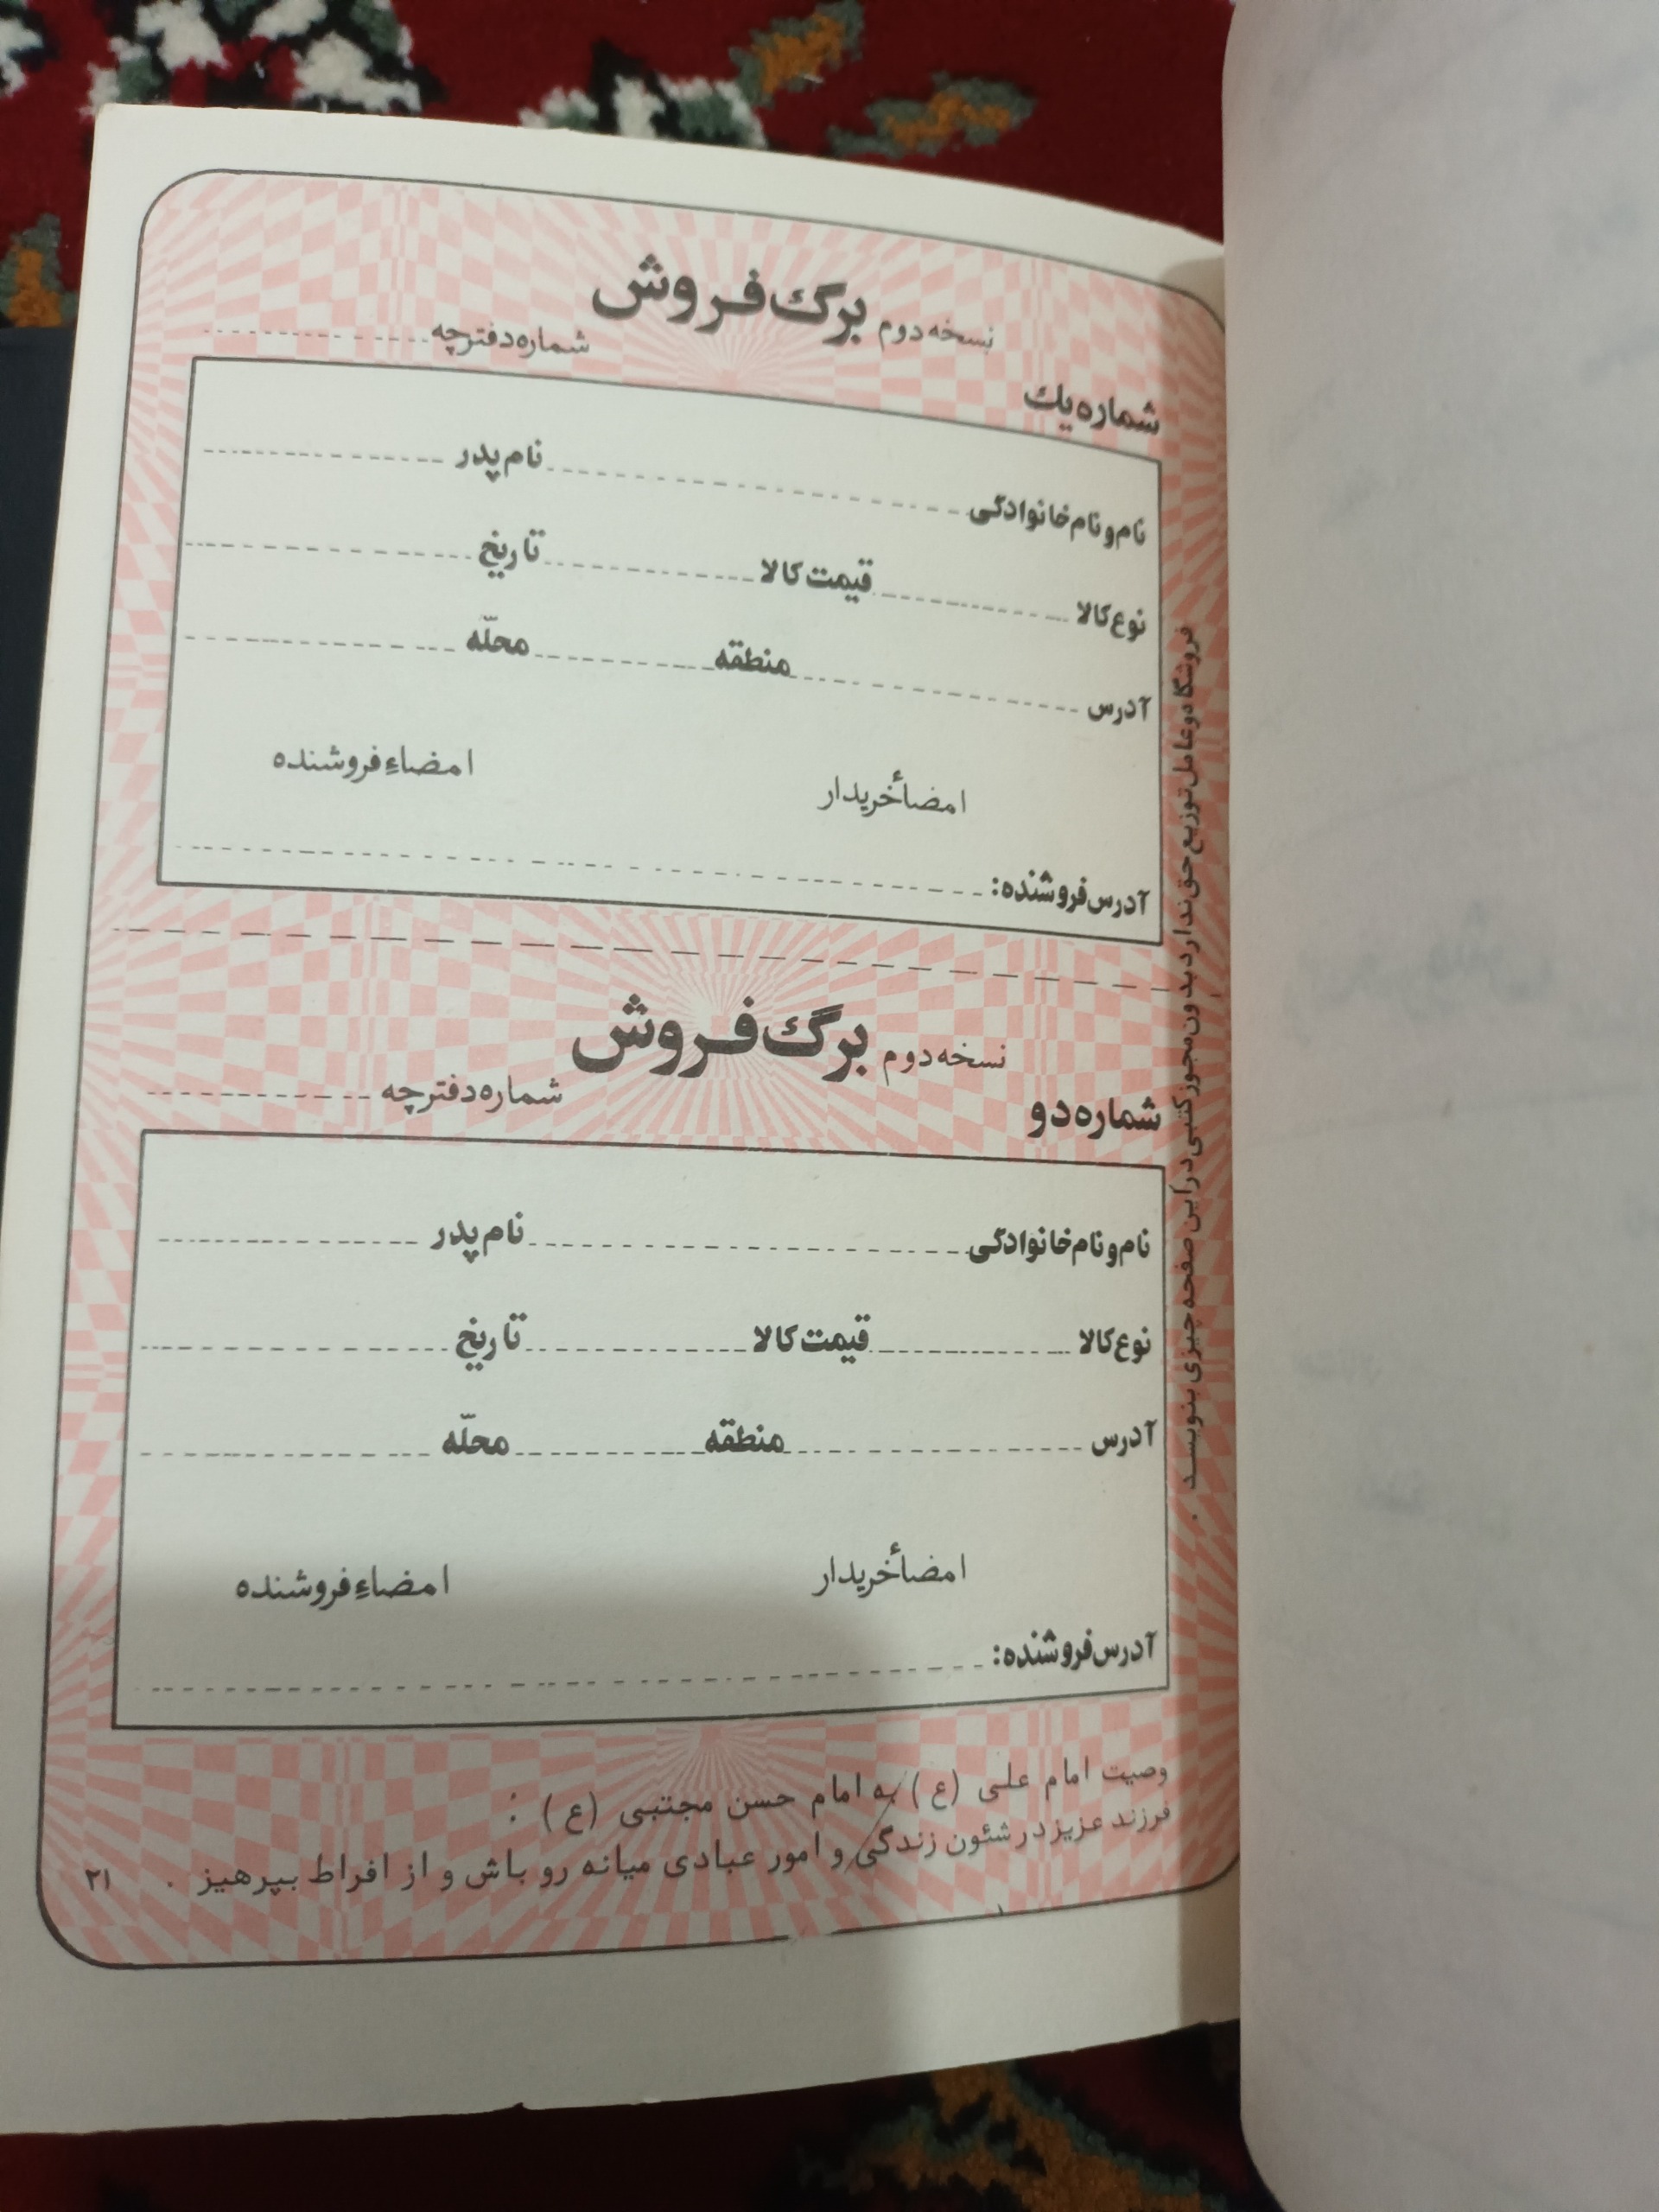 نسخه دوم برگ فروش
شماره دفترچه
شماره یك
نام و نام خانوادگی نام پدر
نوع کالا قیمت کالا تاریخ
آدرس منطقه محلّه
امضاٴ خریدار امضاءِ فروشنده
آدرس فروشنده:
نسخه دوم برگ فروش
شماره دفترچه
شماره دو
نام و نام خانوادگی نام پدر
نوع کالا قیمت کالا تاریخ
آدرس منطقه محلّه
امضاٴ خریدار امضاءِ فروشنده
آدرس فروشنده:
فروشگاه و عامل توزیع حق ندارد بدون مجوز کتبی در این صفحه چیزی بنویسد .
وصیت امام علی (ع) به امام حسن مجتبی (ع) :
فرزند عزیز در شئون زندگی و امور عبادی میانه رو باش و از افراط بپرهیز .
۲۱